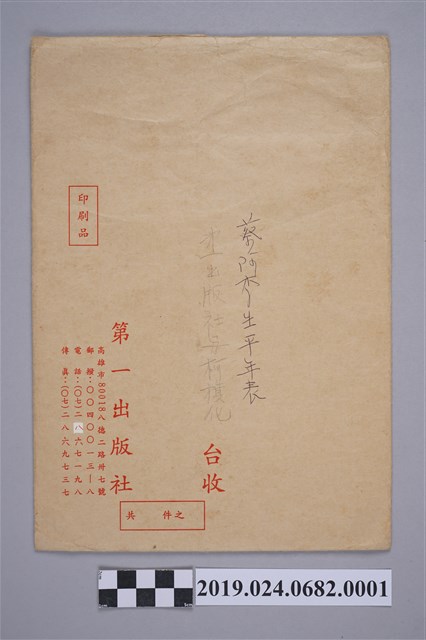 印刷品
蔡阿李生平年表
台收
第一出版社
高雄市80018八德二路卅七號
郵撥：〇〇四〇〇一三—八
電話：(〇七)二八六七一九八
傳真：(〇七)二八六九七三七
共　件之
2019.024.0682.0001